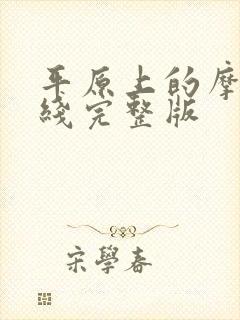 平原上的摩
綫完整版
宋學春